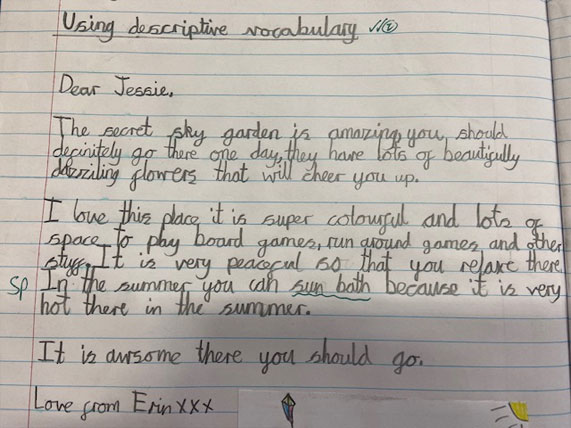 Using descriptive vocabulary
Dear Jessie,
The secret sky garden is amazing, you should
definitely go there one day, they have lots of beautifully
dazziling flowers that will cheer you up.
I love this place it is super colourful and lots of
space to play board games, run around games and other
stuff. It is very peaceful so that you relaxe there
Sp In the summer you can sun bath because it is very
hot there in the summer.
It is awsome there you should go.
Love from Erin xxx